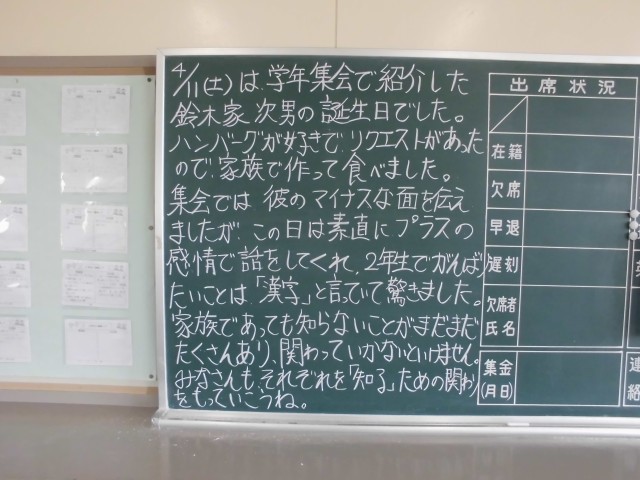 4/11(土)は、学年集会で紹介した
鈴木家次男の誕生日でした。
ハンバーグが好きで、リクエストがあった
ので、家族で作って食べました。
集会では、彼のマイナスな面を伝え
ましたが、この日は素直にプラスの
感情で話をしてくれ、2年生でがんば
たいことは「漢字」と言っていて驚きました。
家族であっても知らないことがまだまだ
たくさんあり、関わっていかないといけません。
みなさんも、それぞれを「知る」ための関わり
をもっていこうね。
出席状況
在籍
欠席
早退
遅刻
欠席者
氏名
集金
(月日)
連
絡